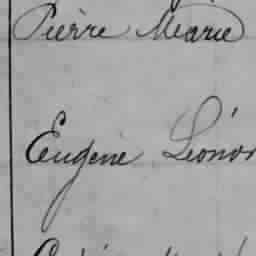 Pierre Marie
Eugène Léonor